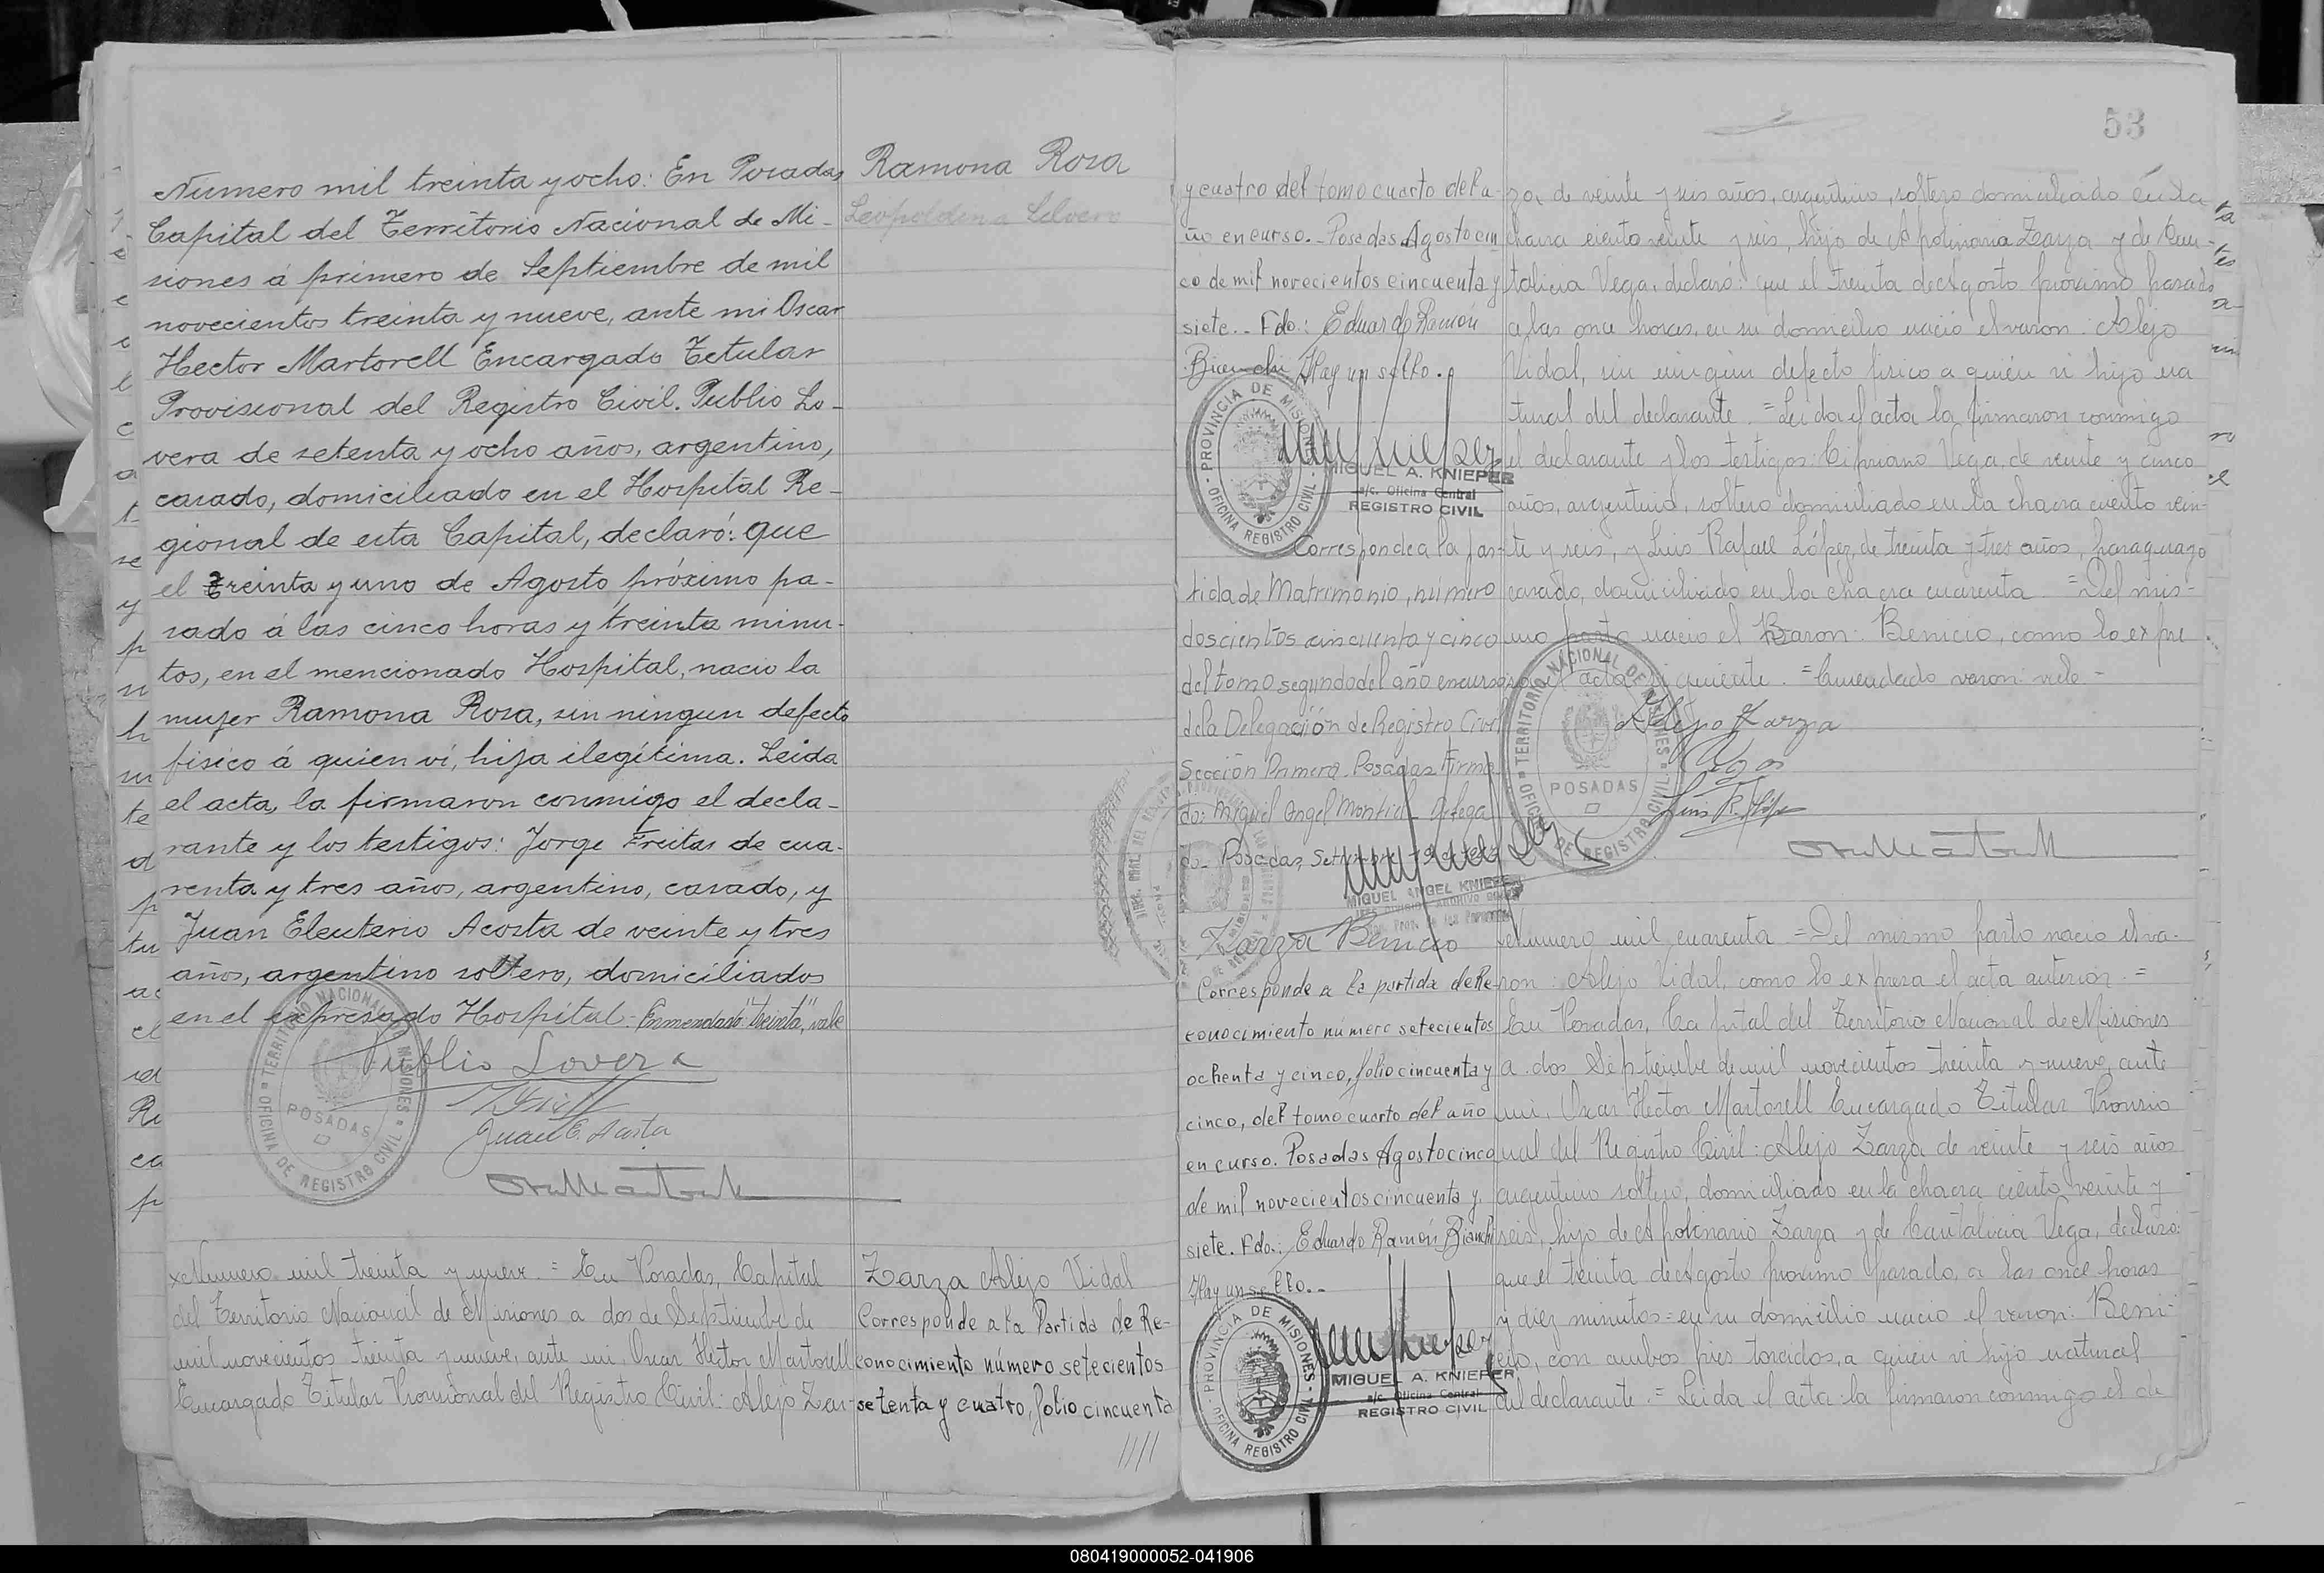 Número mil treinta y ocho: En Posadas,
Capital del Territorio Nacional de Mi-
siones á primero de Septiembre de mil
novecientos treinta y nueve, ante mi Oscar
Hector Martorell Encargado Tetular
Provisional del Registro Civil. Publio Lo-
vera de setenta y ocho años, argentino,
casado, domiciliado en el Hospital Re-
gional de esta Capital, declaró: que
el treinta y uno de Agosto próximo pa-
sado á las cinco horas y treinta minu-
tos, en el mencionado Hospital, nacio la
mujer Ramona Rosa, sin ningun defecto
fisico á quien vi, hija ilegítima. Leida
el acta, la firmaron conmigo el decla-
rante y los testigos: Jorge Freitas de cua-
renta y tres años, argentino, casado, y
Juan Eleuterio Acosta de veinte y tres
años, argentino soltero, domiciliados
en el expresado Hospital. Enmendado "treinta", vale
Publio Lovera
Juan E. Acosta
TERRITORIO NACIONAL DE MISIONES
POSADAS
OFICINA DE REGISTRO CIVIL
Ramona Rosa
Leopoldina
Numero mil treinta y nueve = En Posadas, Capital
del Territorio Nacional de Misiones a dos de Septiembre de
mil novecientos treinta y nueve, ante mi, Oscar Hector Martorell
Encargado Titular Provisional del Registro Civil: Alejo Zar-
Zarza Alejo Vidal
Corresponde a la Partida de Re-
conocimiento número setecientos
setenta y cuatro, folio cincuenta
////
53
y cuatro del tomo cuarto del a-
ño en curso.- Posadas Agosto cin
co de mil novecientos cincuenta y
siete.- Fdo.: Eduardo Ramón
Bianchi Hay un sello.
PROVINCIA DE MISIONES
OFICINA REGISTRO CIVIL
MIGUEL A. KNIEPER
a/c. Oficina Central
REGISTRO CIVIL
Corresponde a la par-
tida de Matrimonio, número
doscientos cincuenta y cinco
del tomo segundo del año en curso
de la Delegación de Registro Civil
Sección Primera. Posadas Firma
do: Miguel Angel Montiel
do. Posadas,
MIGUEL ANGEL KNIEPER
za, de veinte y seis años, argentino, soltero domiciliado en la
chacra ciento veinte y seis, hijo de Apolinaria Zarza y de Can-
talicia Vega, declaró: que el treinta de Agosto proximo pasado
a las once horas, en su domicilio nació el varon: Alejo
Vidal, sin ningún defecto fisico a quién vi hijo na
tural del declarante. = Leida el acta la firmaron conmigo
el declarante y los testigos: Cipriano Vega, de veinte y cinco
años, argentino, soltero domiciliado en la chacra ciento vein-
te y seis, y Luis Rafael López, de treinta y tres años, paraguayo
casado, domiciliado en la chacra cuarenta = Del mis-
mo parto nacio el Baron: Benicio, como lo expre
sa el acta siguiente. = Enmendado varon: vale -
Alejo Zarza
Luis R. López
TERRITORIO NACIONAL DE MISIONES
POSADAS
OFICINA DE REGISTRO CIVIL
Zarza Benicio
Corresponde a la partida de Re-
conocimiento número setecientos
ochenta y cinco, folio cincuenta y
cinco, del tomo cuarto del año
en curso. Posadas Agosto cinco
de mil novecientos cincuenta y
siete. Fdo.: Eduardo Ramón Bianchi
Hay un sello.-
PROVINCIA DE MISIONES
OFICINA REGISTRO CIVIL
MIGUEL A. KNIEPER
a/c. Oficina Central
REGISTRO CIVIL
Numero mil cuarenta = Del mismo parto nacio el va-
ron: Alejo Vidal, como lo expresa el acta anterior. =
En Posadas, Capital del Territorio Nacional de Misiones
a dos Septiembre de mil novecientos treinta y nueve, ante
mi, Oscar Hector Martorell Encargado Titular Provisio
nal del Registro Civil: Alejo Zarza de veinte y seis años
argentino soltero, domiciliado en la chacra ciento veinte y
seis, hijo de Apolinario Zarza y de Cantalicia Vega, declaró:
que el treinta de Agosto proximo pasado, a las once horas
y diez minutos = en su domicilio nacio el varon: Beni-
cio, con ambos pies torcidos, a quien vi hijo natural
del declarante. = Leida el acta la firmaron conmigo el de
080419000052-041906